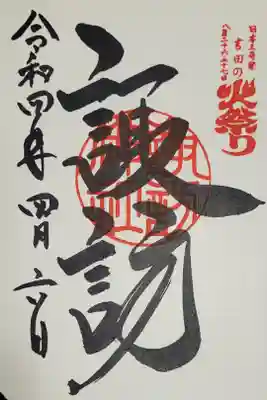 日本三奇祭
吉田の
火祭り
八月二十六・二十七日
諏訪
令和四年 四月